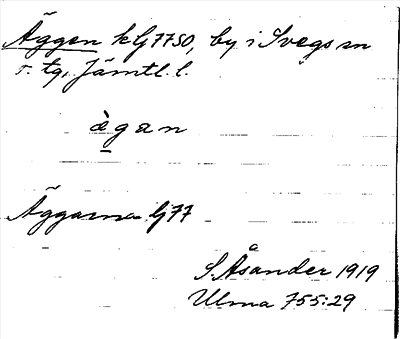 Äggen klj 7750, by i Svegs sn
o. tg, Jämtl. l.
ägan
Äggarna lj 77
S. Åsander 1919
Ulma 755:29